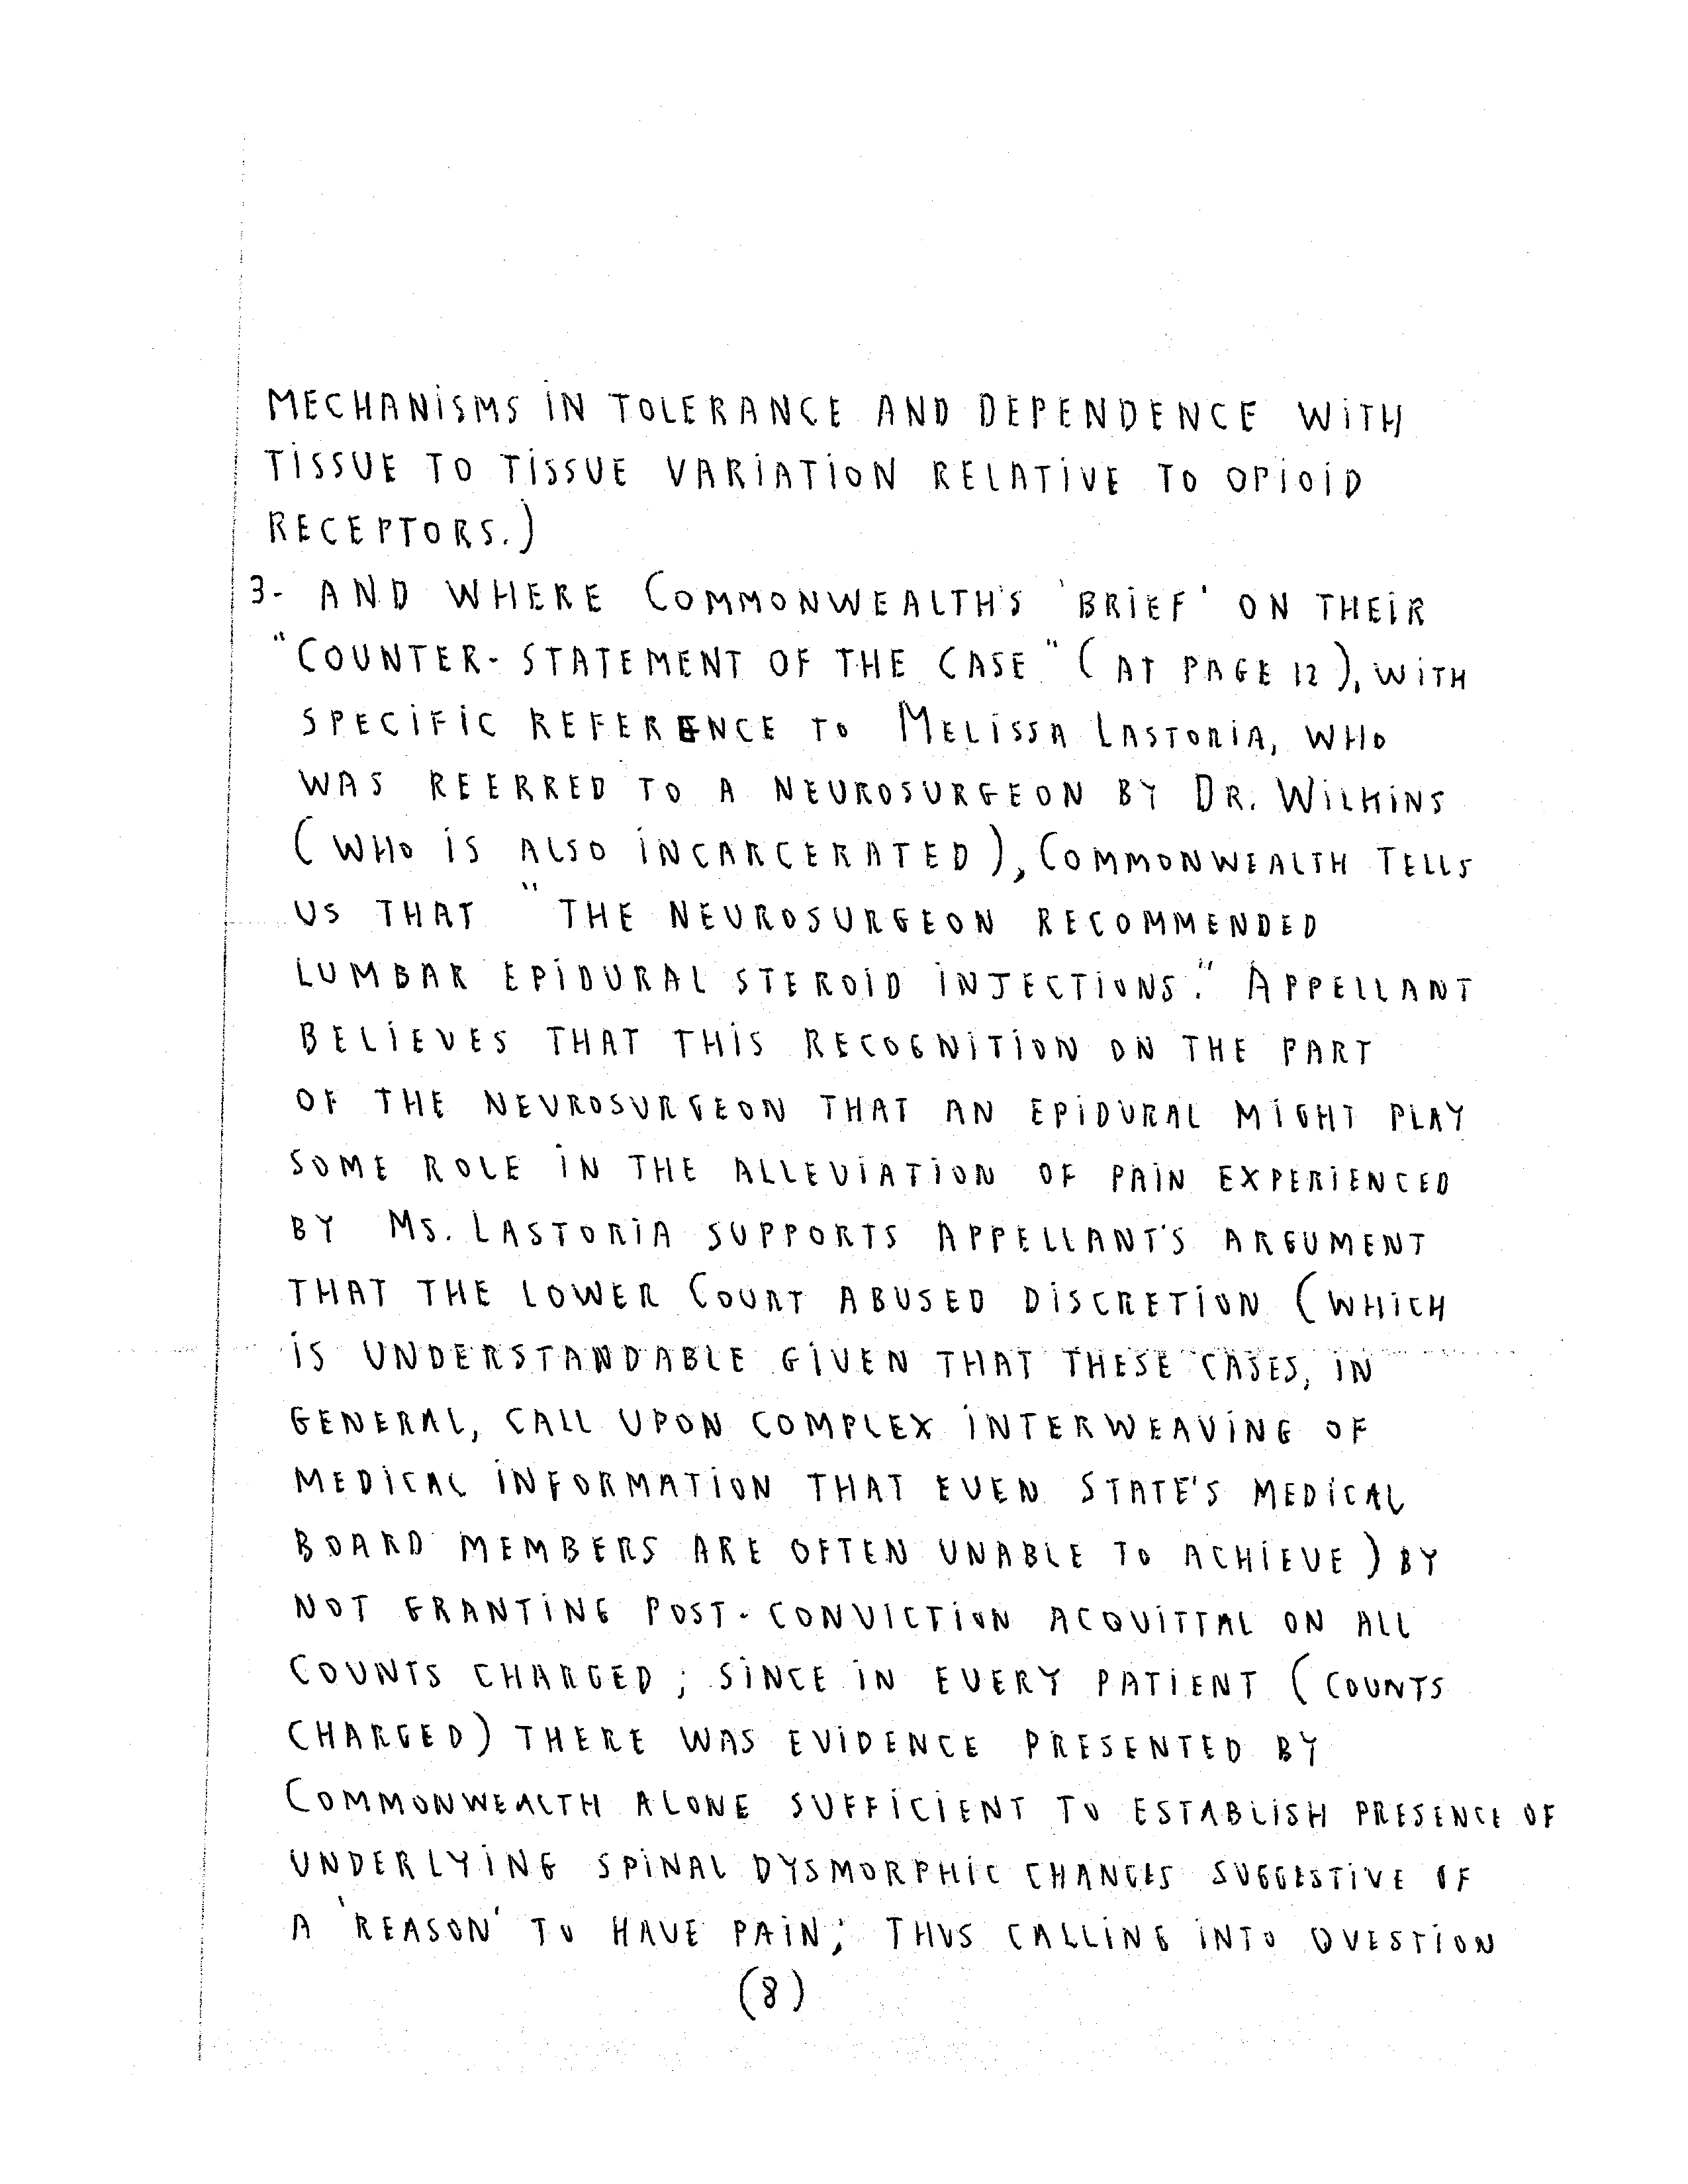 MECHANISMS IN TOLERANCE AND DEPENDENCE WITH
TISSUE TO TISSUE VARIATION RELATIVE TO OPIOID
RECEPTORS.)
3- AND WHERE COMMONWEALTH'S 'BRIEF' ON THEIR
"COUNTER-STATEMENT OF THE CASE" (AT PAGE 12), WITH
SPECIFIC REFERENCE TO MELISSA LASTORIA, WHO
WAS REERRED TO A NEUROSURGEON BY DR. WILKINS
(WHO IS ALSO INCARCERATED), COMMONWEALTH TELLS
US THAT "THE NEUROSURGEON RECOMMENDED
LUMBAR EPIDURAL STEROID INJECTIONS." APPELLANT
BELIEVES THAT THIS RECOGNITION ON THE PART
OF THE NEUROSURGEON THAT AN EPIDURAL MIGHT PLAY
SOME ROLE IN THE ALLEVIATION OF PAIN EXPERIENCED
BY MS. LASTORIA SUPPORTS APPELLANT'S ARGUMENT
THAT THE LOWER COURT ABUSED DISCRETION (WHICH
IS UNDERSTANDABLE GIVEN THAT THESE CASES, IN
GENERAL, CALL UPON COMPLEX INTERWEAVING OF
MEDICAL INFORMATION THAT EVEN STATE'S MEDICAL
BOARD MEMBERS ARE OFTEN UNABLE TO ACHIEVE) BY
NOT GRANTING POST-CONVICTION ACQUITTAL ON ALL
COUNTS CHARGED; SINCE IN EVERY PATIENT (COUNTS
CHARGED) THERE WAS EVIDENCE PRESENTED BY
COMMONWEALTH ALONE SUFFICIENT TO ESTABLISH PRESENCE OF
UNDERLYING SPINAL DYSMORPHIC CHANGES SUGGESTIVE OF
A 'REASON' TO HAVE PAIN; THUS CALLING INTO QUESTION
(8)